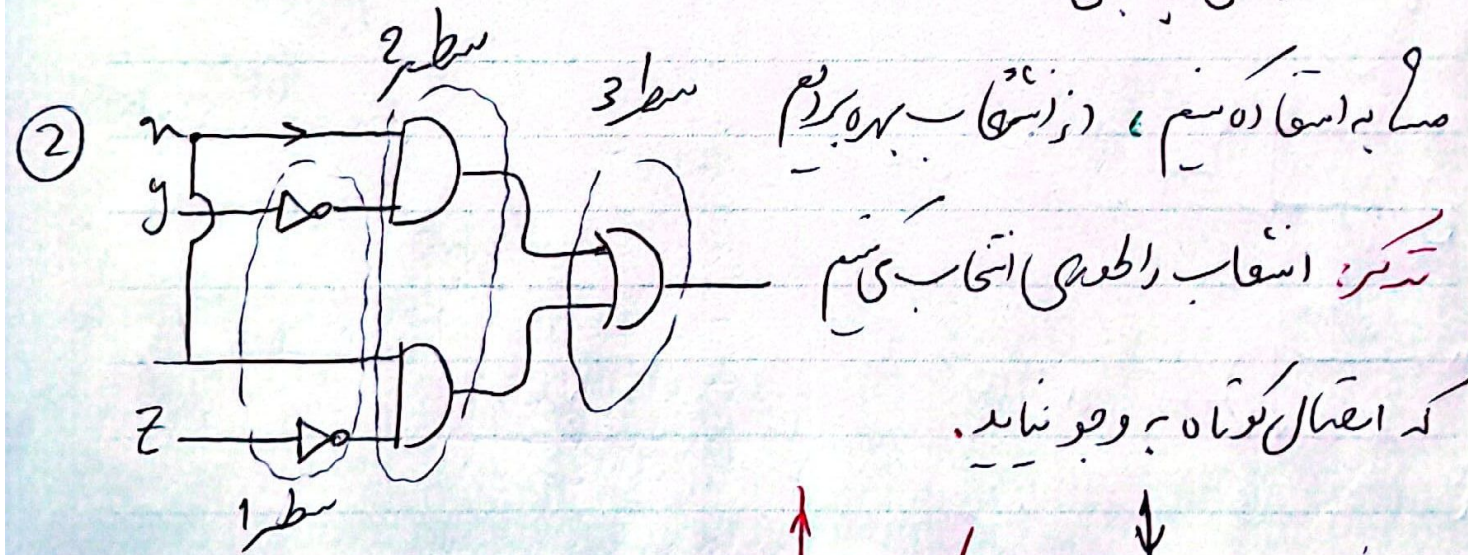 سطر 2
سطر 3
② x
y
z
سطر 1
مشابه استفاده کنیم، از انشعاب بهره بردیم
تذکر: انشعاب را طوری انتخاب می کنیم
که اتصال کوتاه به وجود نیاید.